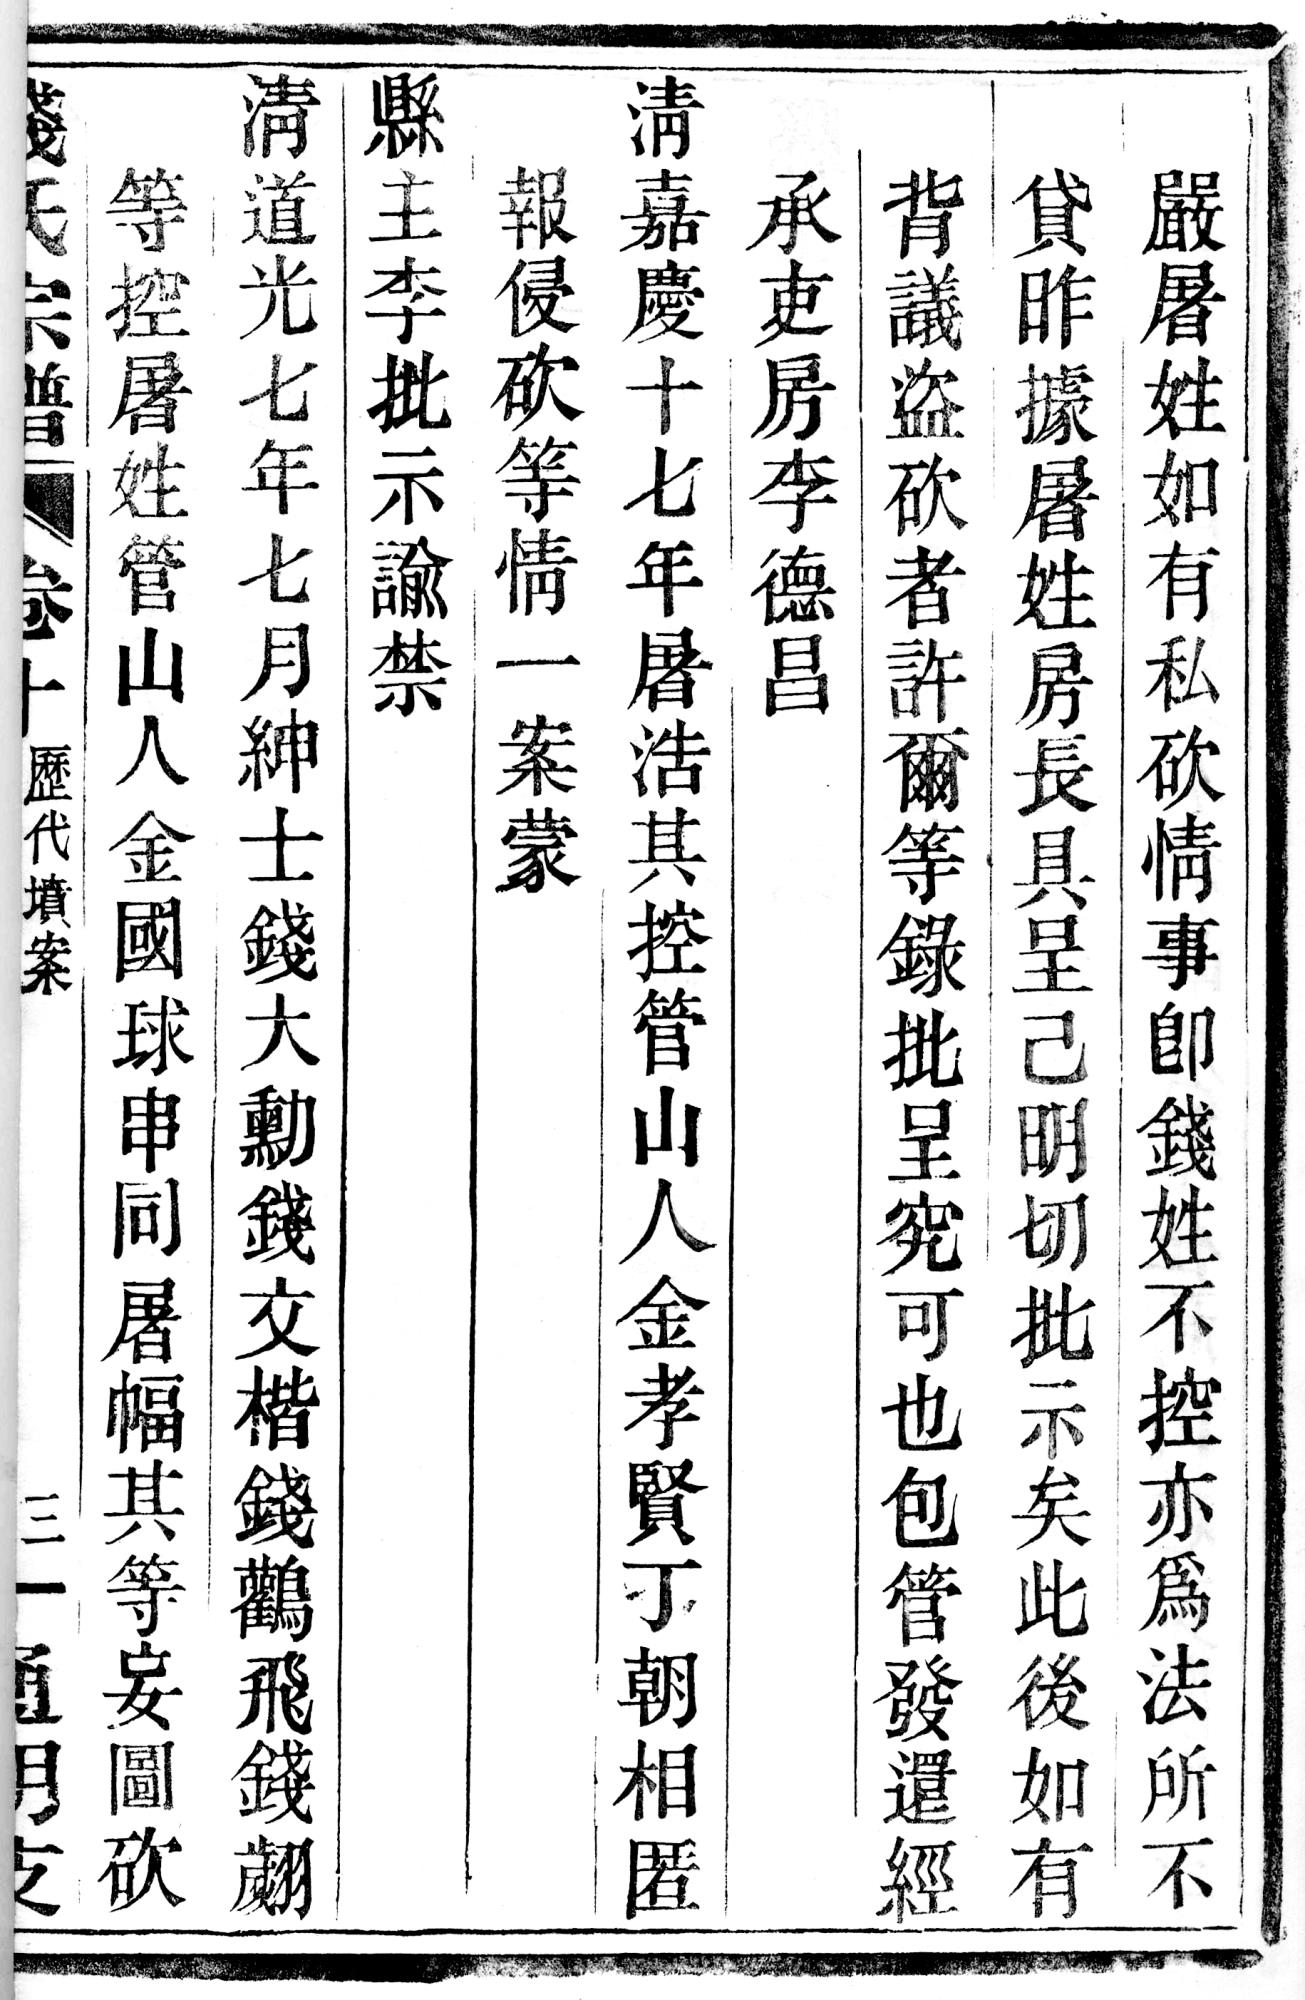 嚴屠姓如有私砍情事卽錢姓不控亦爲法所不
貸昨據屠姓房長具呈己明切批示矣此後如有
背議盜砍者許爾等錄批呈究可也包管發還經
承吏房李德昌
清嘉慶十七年屠浩其控管山人金孝賢丁朝相匿
報侵砍等情一案蒙
縣主李批示諭禁
清道光七年七月紳士錢大勳錢文楷錢鸛飛錢翽
等控屠姓管山人金國球串同屠幅其等妄圖砍
錢氏宗譜 卷十 歷代墳案 三一 通明支